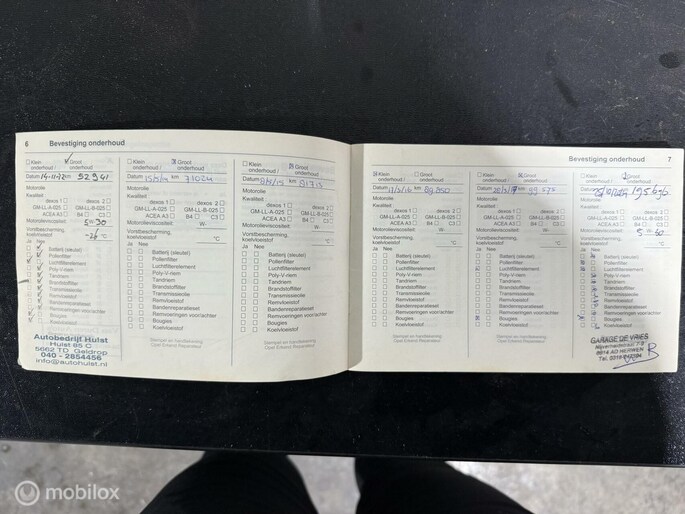 6 Bevestiging onderhoud
Klein onderhoud / Groot onderhoud
Datum km 52941
Motorolie
Kwaliteit
dexos 1 dexos 2
GM-LL-A-025 GM-LL-B-025
ACEA A3 B4 C3
Motorolieviscositeit 5 W 30
Vorstbescherming, koelvloeistof °C
Ja Nee
Batterij (sleutel)
Pollenfilter
Luchtfilterelement
Poly-V-riem
Tandriem
Brandstoffilter
Transmissieolie
Remvloeistof
Bandenreparatieset
Remvoeringen voor/achter
Bougies
Koelvloeistof
Autobedrijf Hulst
Hulst 85 C
5662 TD Geldrop
040 - 2854456
info@autohulst.nl
Klein onderhoud / Groot onderhoud
Datum km 71024
Motorolie
Kwaliteit:
dexos 1 dexos 2
GM-LL-A-025 GM-LL-B-025
ACEA A3 B4 C3
Motorolieviscositeit: W-
Vorstbescherming, koelvloeistof °C
Ja Nee
Batterij (sleutel)
Pollenfilter
Luchtfilterelement
Poly-V-riem
Tandriem
Brandstoffilter
Transmissieolie
Remvloeistof
Bandenreparatieset
Remvoeringen voor/achter
Bougies
Koelvloeistof
Stempel en handtekening
Opel Erkend Reparateur
Klein onderhoud / Groot onderhoud
Datum km 81713
Motorolie
Kwaliteit:
dexos 1 dexos 2
GM-LL-A-025 GM-LL-B-025
ACEA A3 B4 C3
Motorolieviscositeit: W-
Vorstbescherming, koelvloeistof °C
Ja Nee
Batterij (sleutel)
Pollenfilter
Luchtfilterelement
Poly-V-riem
Tandriem
Brandstoffilter
Transmissieolie
Remvloeistof
Bandenreparatieset
Remvoeringen voor/achter
Bougies
Koelvloeistof
Stempel en handtekening
Opel Erkend Reparateur
Bevestiging onderhoud 7
Klein onderhoud / Groot onderhoud
Datum 11/5/16 km 89.850
Motorolie
Kwaliteit:
dexos 1 dexos 2
GM-LL-A-025 GM-LL-B-025
ACEA A3 B4 C3
Motorolieviscositeit: W-
Vorstbescherming, koelvloeistof °C
Ja Nee
Batterij (sleutel)
Pollenfilter
Luchtfilterelement
Poly-V-riem
Tandriem
Brandstoffilter
Transmissieolie
Remvloeistof
Bandenreparatieset
Remvoeringen voor/achter
Bougies
Koelvloeistof
Stempel en handtekening
Opel Erkend Reparateur
Klein onderhoud / Groot onderhoud
Datum km 99.575
Motorolie
Kwaliteit:
dexos 1 dexos 2
GM-LL-A-025 GM-LL-B-025
ACEA A3 B4 C3
Motorolieviscositeit: W-
Vorstbescherming, koelvloeistof °C
Ja Nee
Batterij (sleutel)
Pollenfilter
Luchtfilterelement
Poly-V-riem
Tandriem
Brandstoffilter
Transmissieolie
Remvloeistof
Bandenreparatieset
Remvoeringen voor/achter
Bougies
Koelvloeistof
Stempel en handtekening
Opel Erkend Reparateur
Klein onderhoud / Groot onderhoud
Motorolie
Kwaliteit:
dexos 1 dexos 2
GM-LL-A-025 GM-LL-B-025
ACEA A3 B4 C3
Motorolieviscositeit:
Vorstbescherming, koelvloeistof °C
Ja Nee
Batterij (sleutel)
Pollenfilter
Luchtfilterelement
Poly-V-riem
Tandriem
Brandstoffilter
Transmissieolie
Remvloeistof
Bandenreparatieset
Remvoeringen voor/achter
Bougies
Koelvloeistof
GARAGE DE VRIES
mobilox